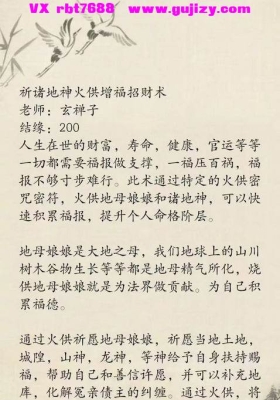 VX rbt7688 www.gujizy.com
祈诸地神火供增福招财术
老师：玄禅子
结缘：200
人生在世的财富，寿命，健康，官运等等
一切都需要福报做支撑，一福压百祸，福
报不够寸步难行。此术通过特定的火供密
咒密符，火供地母娘娘和诸地神，可以快
速积累福报，提升个人命格阶层。
地母娘娘是大地之母，我们地球上的山川
树木谷物生长等等都是地母精气所化，烧
供地母娘娘就是为法界做贡献。为自己积
累福德。
通过火供祈愿地母娘娘，祈愿当地土地，
城隍，山神，龙神，等神给予自身扶持赐
福，帮助自己和善信许愿，并可以补充地
库，化解冤亲债主的纠缠。通过火供，将